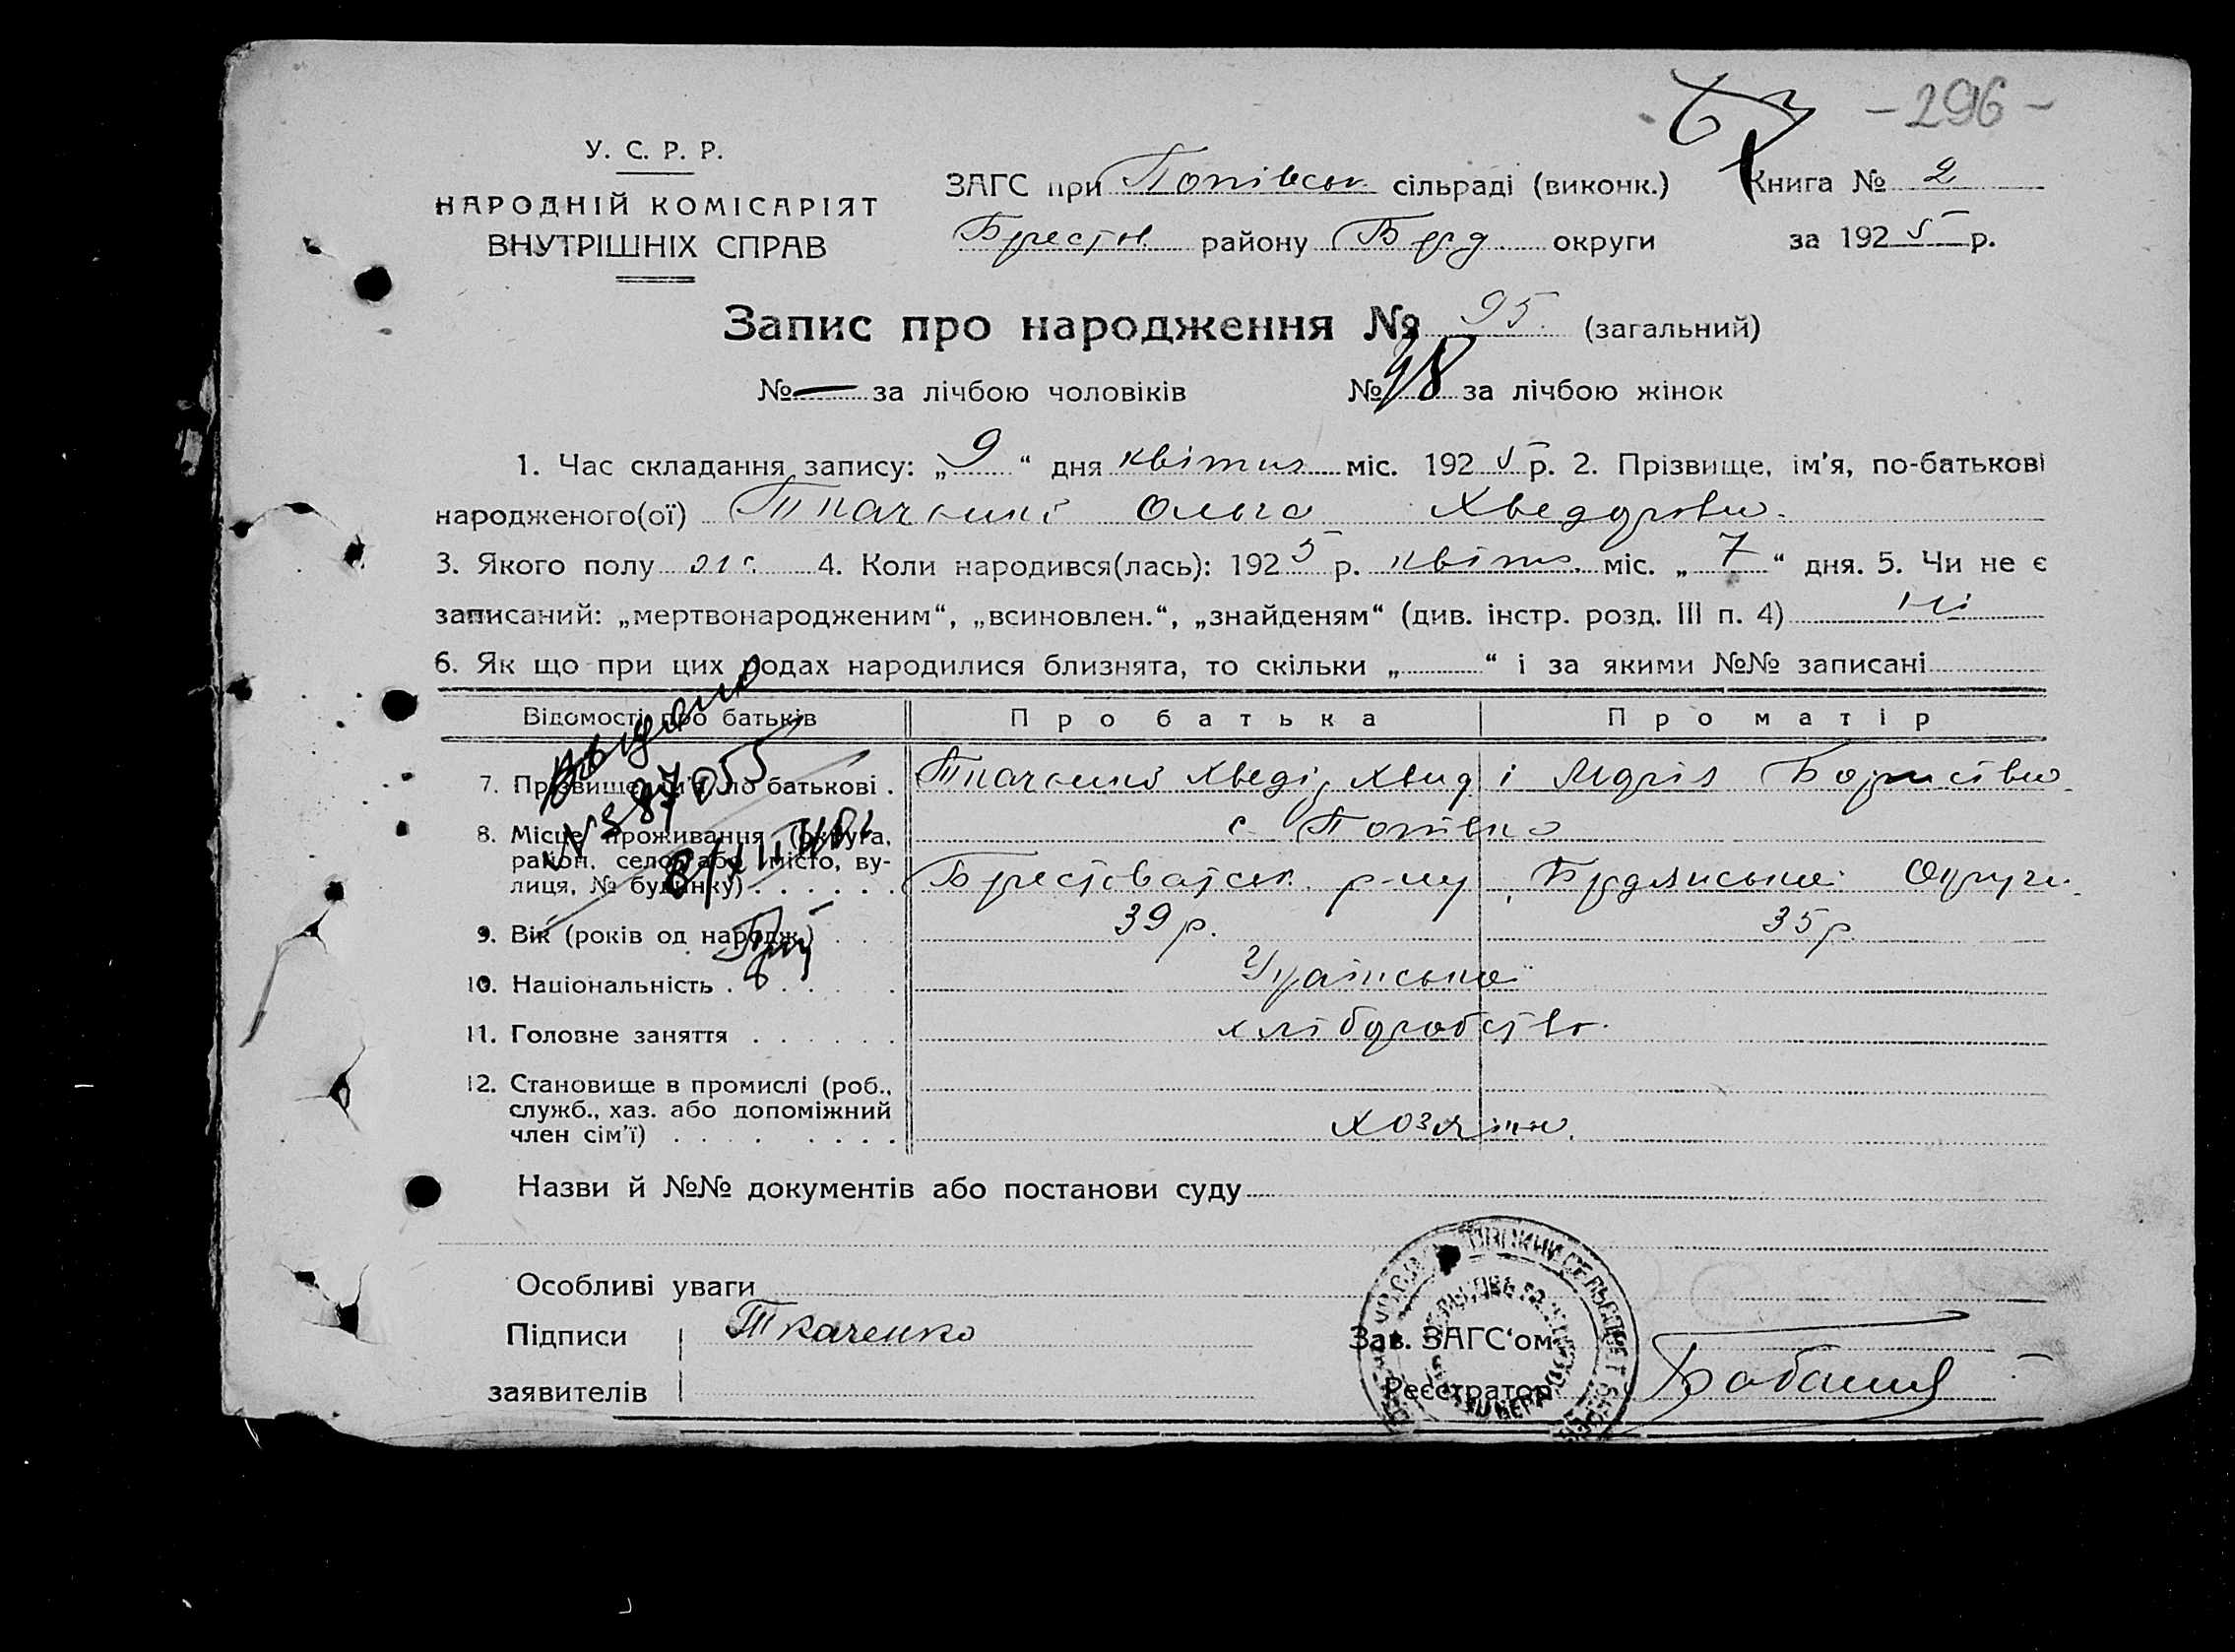 67 - 296 -
У. С. Р. Р.
НАРОДНІЙ КОМІСАРІЯТ
ВНУТРІШНІХ СПРАВ
ЗАГС при Попівськ. сільраді (виконк.) Книга № 2
Брестов. району Берд. округи за 1925 р.
Запис про народження № 95. (загальний)
№ — за лічбою чоловіків № 48 за лічбою жінок
1. Час складання запису: „9“ дня квітня міс. 1925 р. 2. Прізвище, ім'я, по-батькові
народженого(ої) Ткаченко Ольга Хведоровн.
3. Якого полу жін. 4. Коли народився(лась): 1925 р. квітня міс. „7“ дня. 5. Чи не є
записаний: „мертвонародженим“, „всиновлен.“, „знайденям“ (див. інстр. розд. III п. 4) ні
6. Як що при цих родах народилися близнята, то скільки „ “ і за якими №№ записані
Відомості про батьків Про батька Про матір
Выдано
7. Прізвище, ім'я, по батькові . Ткаченко Хведір Хвед і Марія Борисівн.
8. Місце проживання (округа, с. Попівка
район, село або місто, ву-
лиця, № будинку) . . . . . . Брестоватськ. р-ну, Бердянської Округи.
9. Вік (років од народж.) . . . 39 р. 35 р.
10. Національність . . . . . . . Українська
11. Головне заняття . . . . . . хліборобство.
12. Становище в промислі (роб.,
служб., хаз. або допоміжний
член сім'ї) . . . . . . . . хозяїн.
Назви й №№ документів або постанови суду
Особливі уваги
Підписи Ткаченко Зав. ЗАГС'ом
заявителів Реєстратор